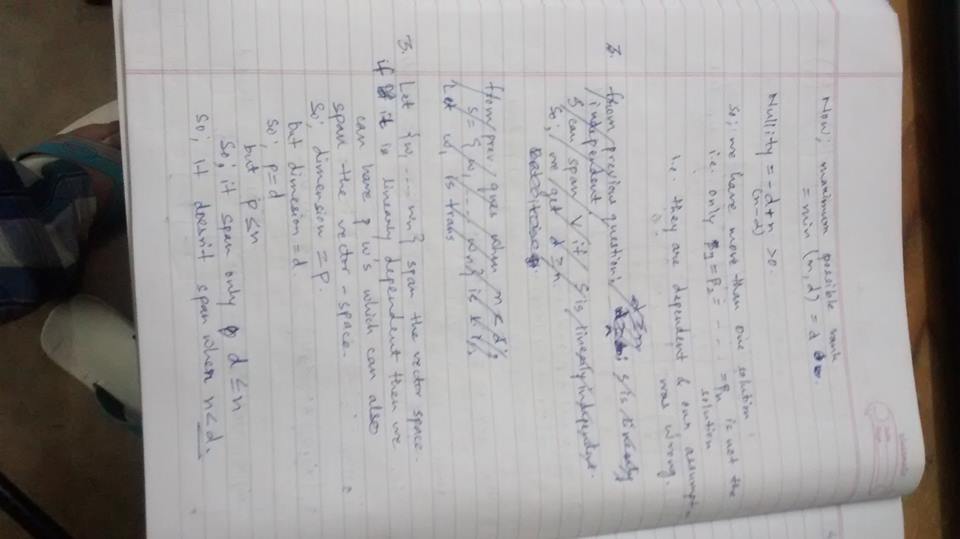 Now, maximum possible rank
= min (n, d) = d
Nullity = -d + n > 0.
(n-d)
so, we have more than one solution
i.e. only β1 = β2 = - - - = βn is not the
solution
i.e. they are dependent & our assumption
was wrong.
3. from previous question, S is linearly
independent,
S can span V if S is linearly independent.
So, we get d = n
from prev. ques when n < d
S = { w1, - - wn }
Let w1 is trans
3. Let { w1 - - - wn } span the vector space.
if it is linearly dependent then we
can have p w's which can also
span the vector-space.
So, dimension = p.
but dimesion = d.
so, p = d
but p ≤ n
So, it span only d ≤ n
so, it doesn't span when n < d.